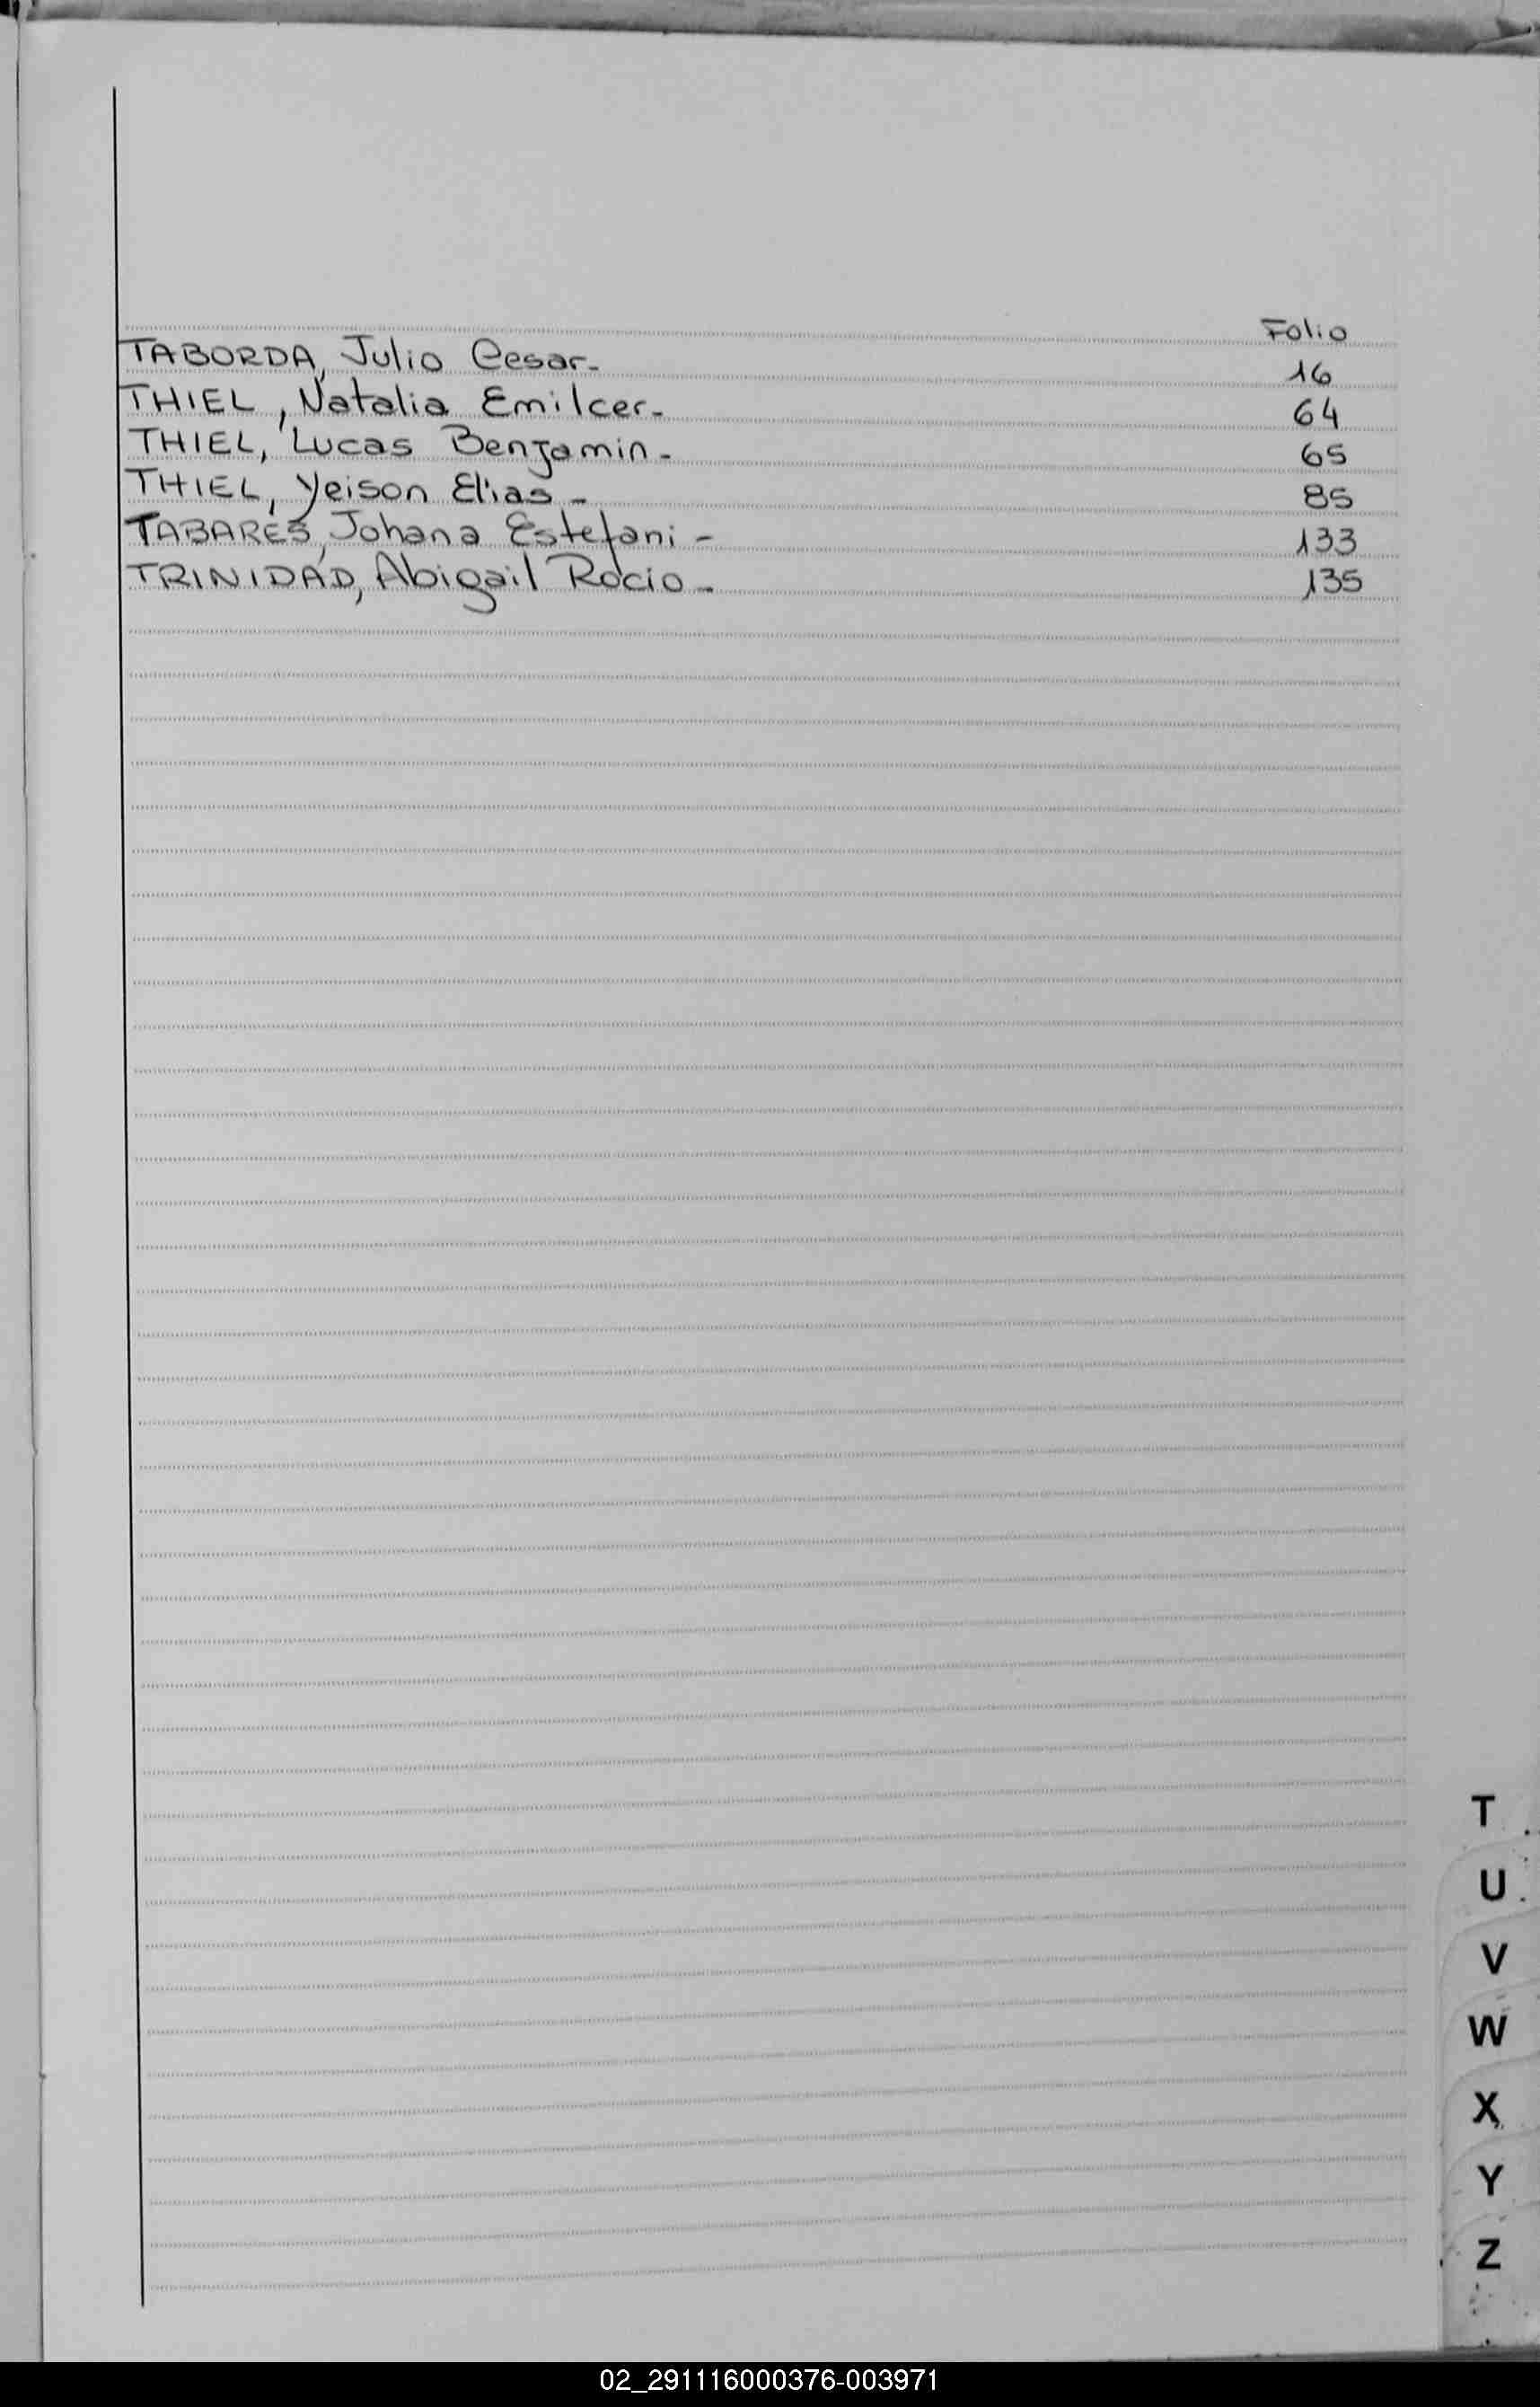 Folio
TABORDA, Julio Cesar- 16
THIEL, Natalia Emilcer- 64
THIEL, Lucas Benjamin- 65
THIEL, Yeison Elias- 85
TABARES, Johana Estefani- 133
TRINIDAD, Abigail Rocio- 135
T
U
V
W
X
Y
Z
02_291116000376-003971